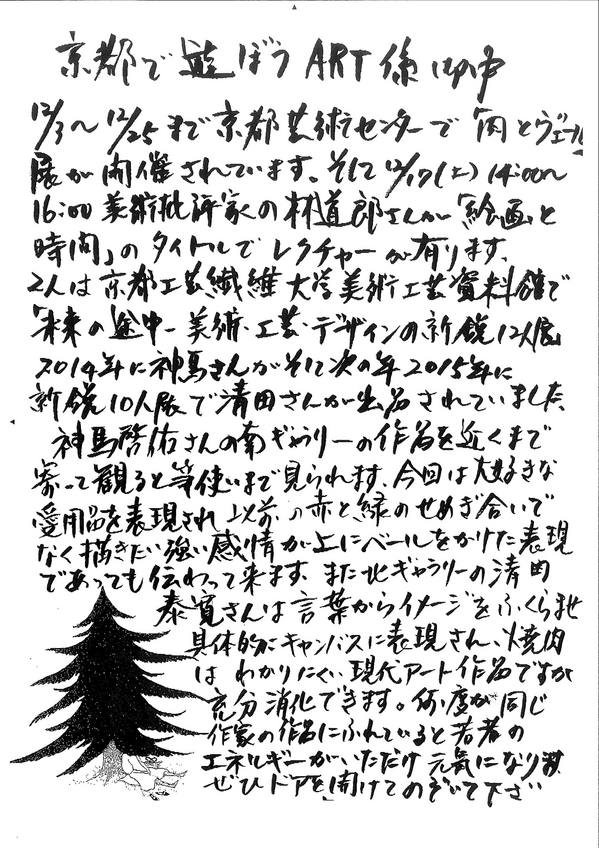 京都で遊ぼうART様 御中
12/3〜12/25まで京都芸術センターで「肉とヴェール」
展が開催されています。そして12/17(土)14:00〜
16:00美術批評家の林道郎さんが「絵画と
時間」のタイトルでレクチャーが有ります。
2人は京都工芸繊維大学美術工芸資料館で
「未来の途中-美術・工芸・デザインの新鋭12人展
2014年に神馬さんがそして次の年2015年に
新鋭10人展で清田さんが出品されていました。
神馬啓佑さんの南ギャラリーの作品を近くまで
寄って観ると筆使いまで見られます。今回は大好きな
愛用品を表現され以前の赤と緑のせめぎ合いで
なく描きたい強い感情が上にベールをかけた表現
であっても伝わって来ます。また北ギャラリーの清田
泰寛さんは言葉からイメージをふくらませ
具体的にキャンバスに表現され、焼肉
はわかりにくい現代アート作品ですが
充分消化できます。何度か同じ
作家の作品にふれていると若者の
エネルギーがいただけ元気になります
ぜひドアを開けてのぞいて下さい